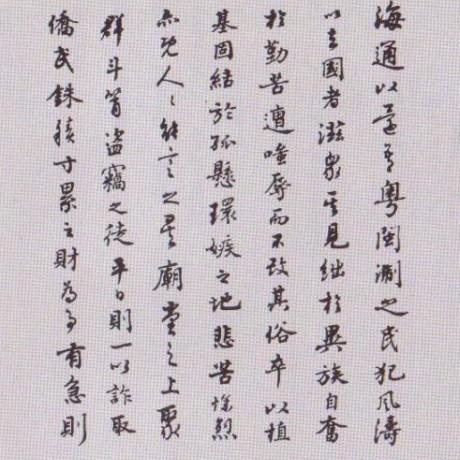 海通以還吾粵閩之民犯風濤
以去國者滋衆其見絀於異族自奮
於勤苦遭嗤辱而不改其俗卒以植
基固結於孤懸環嫉之地悲苦慘烈
亦既人人能言之矣廟堂之上聚
群斗筲盜竊之徒平日則一以詐取
僑民銖積寸累之財為事有急則